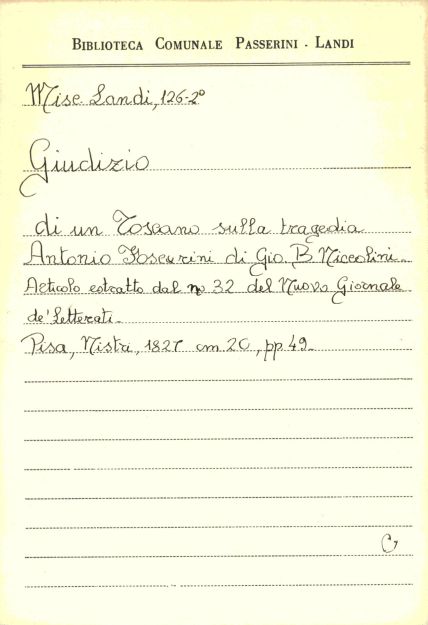 BIBLIOTECA COMUNALE PASSERINI - LANDI
Misc. Landi, 126-2°
Giudizio
di un Toscano sulla tragedia
Antonio Foscarini di Gio. B. Niccolini.
Articolo estratto dal n° 32 del Nuovo Giornale
de' Letterati.
Pisa, Nistri, 1827 cm 20, pp 49.